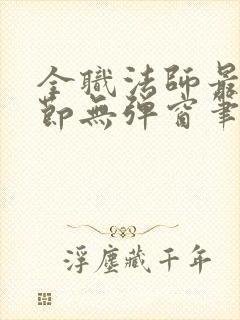 全職法師最
節無彈窗筆
浮塵藏千年